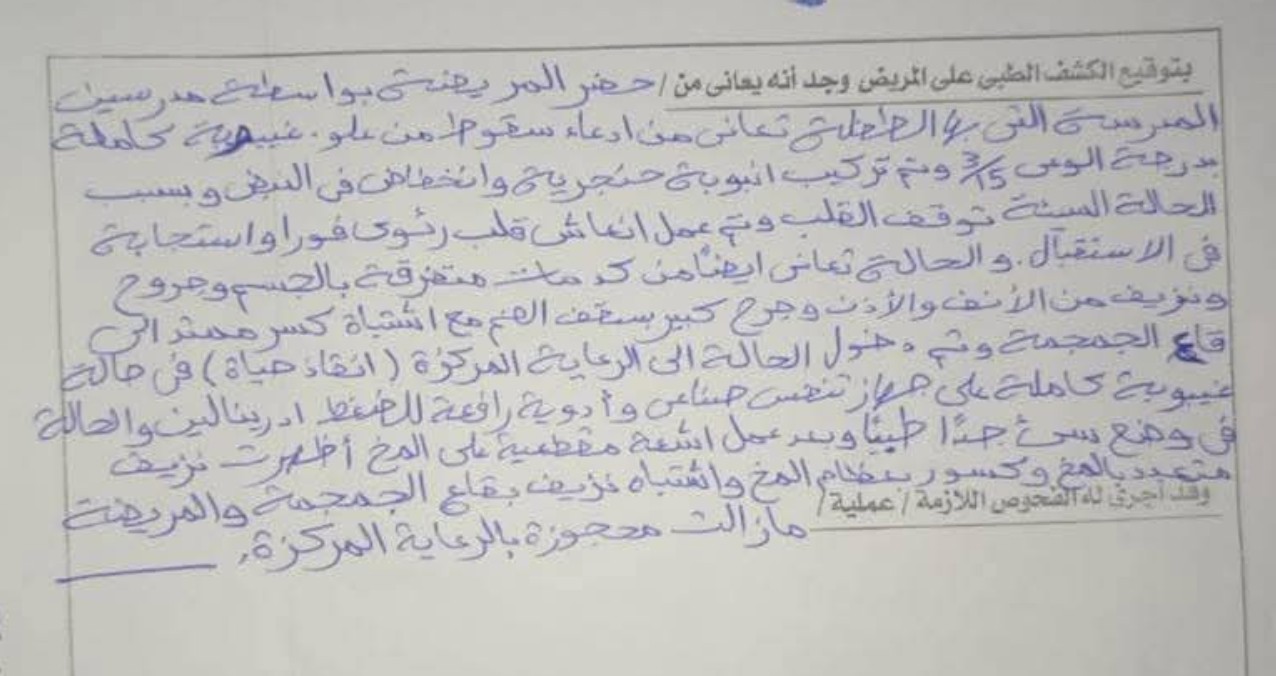 بتوقيع الكشف الطبى على المريض وجد أنه يعانى من / حضر المريضة بواسطة مدرسين
المدرسة التى بها الطفلة تعانى من ادعاء سقوط من علو . غيبوبة كاملة
بدرجة الوعى 3/15 وتم تركيب انبوبة حنجرية وانخفاض فى النبض وبسبب
الحالة السيئة توقف القلب وتم عمل انعاش قلب رئوى فورا واستجابة
فى الاستقبال . والحالة تعانى ايضًا من كدمات متفرقة بالجسم وجروح
ونزيف من الأنف والأذن وجرح كبير بسقف الفم مع اشتباة كسر ممتد الى
قاع الجمجمة وتم دخول الحالة الى الرعاية المركزة ( انقاذ حياة ) فى حالة
غيبوبة كاملة على جهاز تنفس صناعى وأدوية رافعة للضغط ادرينالين والحالة
فى وضع سئ جدًا طبيًا وبعد عمل اشعة مقطعية على المخ أظهرت نزيف
متعدد بالمخ وكسور بعظام المخ واشتباه نزيف بقاع الجمجمة والمريضة
وقد أجرى له الفحوص اللازمة / عملية / مازالت محجوزة بالرعاية المركزة .